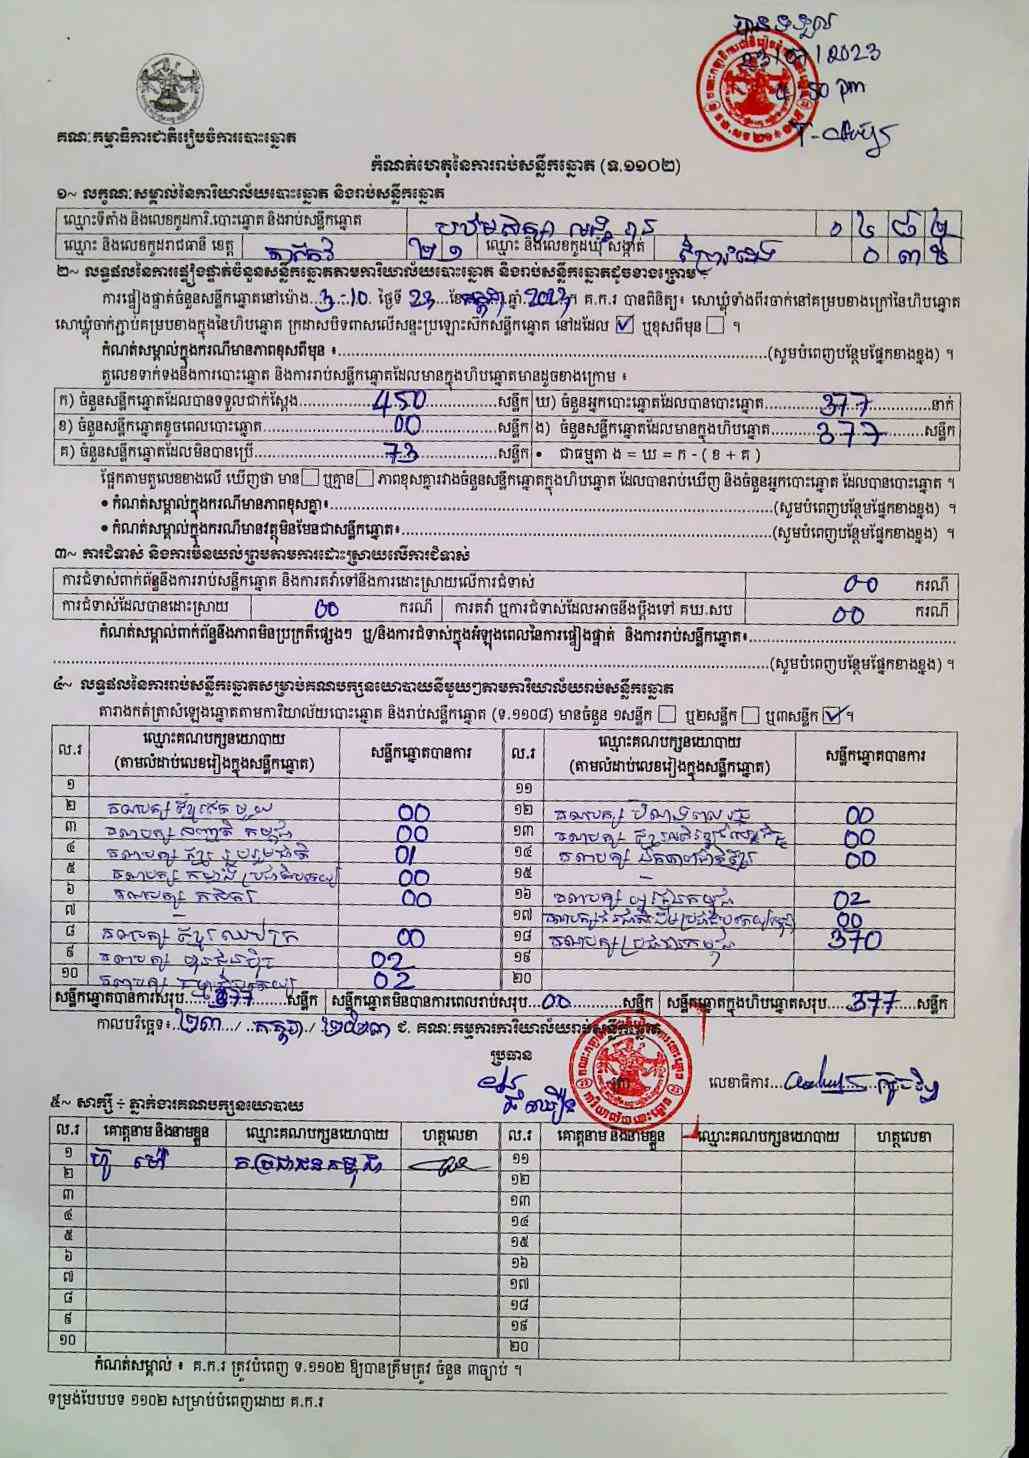 បានទទួល
23/07/2023
4:50 pm
គណៈកម្មាធិការជាតិរៀបចំការបោះឆ្នោត
កំណត់ហេតុនៃការរាប់សន្លឹកឆ្នោត (ទ.១១០២)
១~ លក្ខណៈសម្គាល់នៃការិយាល័យបោះឆ្នោត និងរាប់សន្លឹកឆ្នោត
ឈ្មោះទីតាំង និងលេខកូដការិ.បោះឆ្នោត និងរាប់សន្លឹកឆ្នោត
ឈ្មោះ និងលេខកូដរាជធានី ខេត្ត តាកែវ ២ ១ ឈ្មោះ និងលេខកូដឃុំ សង្កាត់
២~ លទ្ធផលនៃការផ្ទៀងផ្ទាត់ចំនួនសន្លឹកឆ្នោតតាមការិយាល័យបោះឆ្នោត និងរាប់សន្លឹកឆ្នោតដូចខាងក្រោម ÷
ការផ្ទៀងផ្ទាត់ចំនួនសន្លឹកឆ្នោតនៅម៉ោង 3:10 ថ្ងៃទី 23 ខែ កក្កដា ឆ្នាំ 2023 ។ គ.ក.រ បានពិនិត្យ៖ សោឃ្លុំទាំងពីរចាក់នៅគម្របខាងក្រៅនៃហិបឆ្នោត
សោឃ្លុំចាក់ភ្ជាប់គម្របខាងក្នុងនៃហិបឆ្នោត ក្រដាសបិទពាសលើសន្ទះប្រឡោះស៊កសន្លឹកឆ្នោត នៅដដែល ☑ ឬខុសពីមុន ☐ ។
កំណត់សម្គាល់ក្នុងករណីមានភាពខុសពីមុន ៖ (សូមបំពេញបន្ថែមផ្នែកខាងខ្នង) ។
តួលេខទាក់ទងនឹងការបោះឆ្នោត និងការរាប់សន្លឹកឆ្នោតដែលមានក្នុងហិបឆ្នោតមានដូចខាងក្រោម ៖
ក) ចំនួនសន្លឹកឆ្នោតដែលបានទទួលជាក់ស្តែង 450 សន្លឹក ឃ) ចំនួនអ្នកបោះឆ្នោតដែលបានបោះឆ្នោត 377 នាក់
ខ) ចំនួនសន្លឹកឆ្នោតខូចពេលបោះឆ្នោត 00 សន្លឹក ង) ចំនួនសន្លឹកឆ្នោតដែលមានក្នុងហិបឆ្នោត 377 សន្លឹក
គ) ចំនួនសន្លឹកឆ្នោតដែលមិនបានប្រើ 73 សន្លឹក • ជាធម្មតា ង = ឃ = ក - ( ខ + គ )
ផ្អែកតាមតួលេខខាងលើ ឃើញថា មាន ☐ ឬគ្មាន ☐ ភាពខុសគ្នារវាងចំនួនសន្លឹកឆ្នោតក្នុងហិបឆ្នោត ដែលបានរាប់ឃើញ និងចំនួនអ្នកបោះឆ្នោត ដែលបានបោះឆ្នោត ។
• កំណត់សម្គាល់ក្នុងករណីមានភាពខុសគ្នា៖ (សូមបំពេញបន្ថែមផ្នែកខាងខ្នង) ។
• កំណត់សម្គាល់ក្នុងករណីមានវត្ថុមិនមែនជាសន្លឹកឆ្នោត៖ (សូមបំពេញបន្ថែមផ្នែកខាងខ្នង) ។
៣~ ការជំទាស់ និងការមិនយល់ព្រមតាមការដោះស្រាយលើការជំទាស់
ការជំទាស់ពាក់ព័ន្ធនឹងការរាប់សន្លឹកឆ្នោត និងការតវ៉ាទៅនឹងការដោះស្រាយលើការជំទាស់ 00 ករណី
ការជំទាស់ដែលបានដោះស្រាយ 00 ករណី ការតវ៉ា ឬការជំទាស់ដែលអាចនឹងប្តឹងទៅ គឃ.សប 00 ករណី
កំណត់សម្គាល់ពាក់ព័ន្ធនឹងភាពមិនប្រក្រតីផ្សេងៗ ឬ/និងការជំទាស់ក្នុងអំឡុងពេលនៃការផ្ទៀងផ្ទាត់ និងការរាប់សន្លឹកឆ្នោត៖
(សូមបំពេញបន្ថែមផ្នែកខាងខ្នង) ។
៤~ លទ្ធផលនៃការរាប់សន្លឹកឆ្នោតសម្រាប់គណបក្សនយោបាយនីមួយៗតាមការិយាល័យរាប់សន្លឹកឆ្នោត
តារាងកត់ត្រាសំឡេងឆ្នោតតាមការិយាល័យបោះឆ្នោត និងរាប់សន្លឹកឆ្នោត (ទ.១១០៨) មានចំនួន ១សន្លឹក ☐ ឬ២សន្លឹក ☐ ឬ៣សន្លឹក ☑ ។
ល.រ ឈ្មោះគណបក្សនយោបាយ (តាមលំដាប់លេខរៀងក្នុងសន្លឹកឆ្នោត) សន្លឹកឆ្នោតបានការ ល.រ ឈ្មោះគណបក្សនយោបាយ (តាមលំដាប់លេខរៀងក្នុងសន្លឹកឆ្នោត) សន្លឹកឆ្នោតបានការ
១ ១១
២ គណបក្ស ខ្មែរតែមួយ 00 ១២ គណបក្ស 00
៣ គណបក្ស សញ្ជាតិកម្ពុជា 00 ១៣ គណបក្ស 00
៤ គណបក្ស ខ្មែរ រួបរួមជាតិ 01 ១៤ គណបក្ស 00
៥ គណបក្ស កម្លាំងប្រជាធិបតេយ្យ 00 ១៥ –
៦ គណបក្ស កសិករ 00 ១៦ គណបក្ស 02
៧ – ១៧ គណបក្ស 00
៨ គណបក្ស 00 ១៨ គណបក្ស ប្រជាជនកម្ពុជា 370
៩ គណបក្ស ហ្វ៊ុនស៊ិនប៉ិច 02 ១៩
១០ គណបក្ស 02 ២០
សន្លឹកឆ្នោតបានការសរុប 377 សន្លឹក សន្លឹកឆ្នោតមិនបានការពេលរាប់សរុប 00 សន្លឹក សន្លឹកឆ្នោតក្នុងហិបឆ្នោតសរុប 377 សន្លឹក
កាលបរិច្ឆេទ៖ ២៣ / កក្កដា / ២០២៣ ជ. គណៈកម្មការការិយាល័យរាប់សន្លឹកឆ្នោត
ប្រធាន លេខាធិការ
៥~ សាក្សី ÷ ភ្នាក់ងារគណបក្សនយោបាយ
ល.រ គោត្តនាម និងនាមខ្លួន ឈ្មោះគណបក្សនយោបាយ ហត្ថលេខា ល.រ គោត្តនាម និងនាមខ្លួន ឈ្មោះគណបក្សនយោបាយ ហត្ថលេខា
១ គ.ប្រជាជនកម្ពុជា ១១
២ ១២
៣ ១៣
៤ ១៤
៥ ១៥
៦ ១៦
៧ ១៧
៨ ១៨
៩ ១៩
១០ ២០
កំណត់សម្គាល់ ៖ គ.ក.រ ត្រូវបំពេញ ទ.១១០២ ឱ្យបានត្រឹមត្រូវ ចំនួន ៣ច្បាប់ ។
ទម្រង់បែបបទ ១១០២ សម្រាប់បំពេញដោយ គ.ក.រ